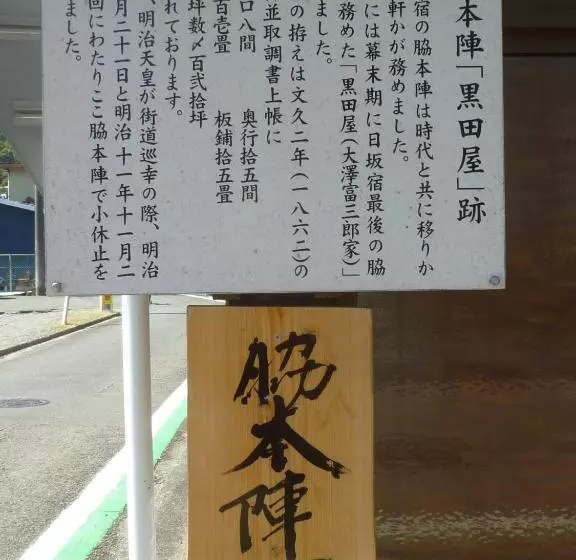 本陣「黒田屋」跡
宿の脇本陣は時代と共に移りか
軒かが務めました。
には幕末期に日坂宿最後の脇
務めた「黒田屋（大澤富三郎家）」
ました。
の拵えは文久二年（一八六二）の
並取調書上帳に
口八間 奥行拾五間
百壱畳 板鋪拾五畳
坪数〆百弐拾坪
れております。
、明治天皇が街道巡幸の際、明治
月二十一日と明治十一年十一月二
回にわたりここ脇本陣で小休止を
ました。
脇本陣